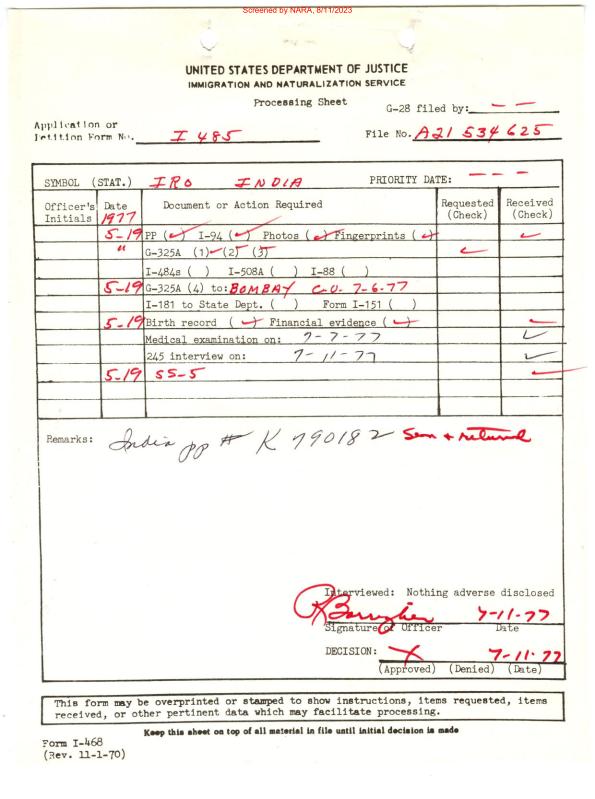 Screened by NARA, 8/11/2023
UNITED STATES DEPARTMENT OF JUSTICE
IMMIGRATION AND NATURALIZATION SERVICE
Processing Sheet
G-28 filed by: – –
Application or
Petition Form No. I 485
File No. A21 534 625
SYMBOL (STAT.) IRO INDIA PRIORITY DATE: – – –
Officer's Initials Date 1977 Document or Action Required Requested (Check) Received (Check)
5-19 PP (✓) I-94 (✓) Photos (✓) Fingerprints (✓) ✓
" G-325A (1) ✓ (2) (3) ✓
I-484s ( ) I-508A ( ) I-88 ( )
5-19 G-325A (4) to: BOMBAY C.O. 7-6-77
I-181 to State Dept. ( ) Form I-151 ( )
5-19 Birth record (✓) Financial evidence (✓) ✓
Medical examination on: 7-7-77 ✓
245 interview on: 7-11-77 ✓
5-19 SS-5 ✓
Remarks: India pp # K 790182 Seen + returned
Interviewed: Nothing adverse disclosed
7-11-77
Signature of Officer Date
DECISION: X 7-11-77
(Approved) (Denied) (Date)
This form may be overprinted or stamped to show instructions, items requested, items
received, or other pertinent data which may facilitate processing.
Keep this sheet on top of all material in file until initial decision is made
Form I-468
(Rev. 11-1-70)